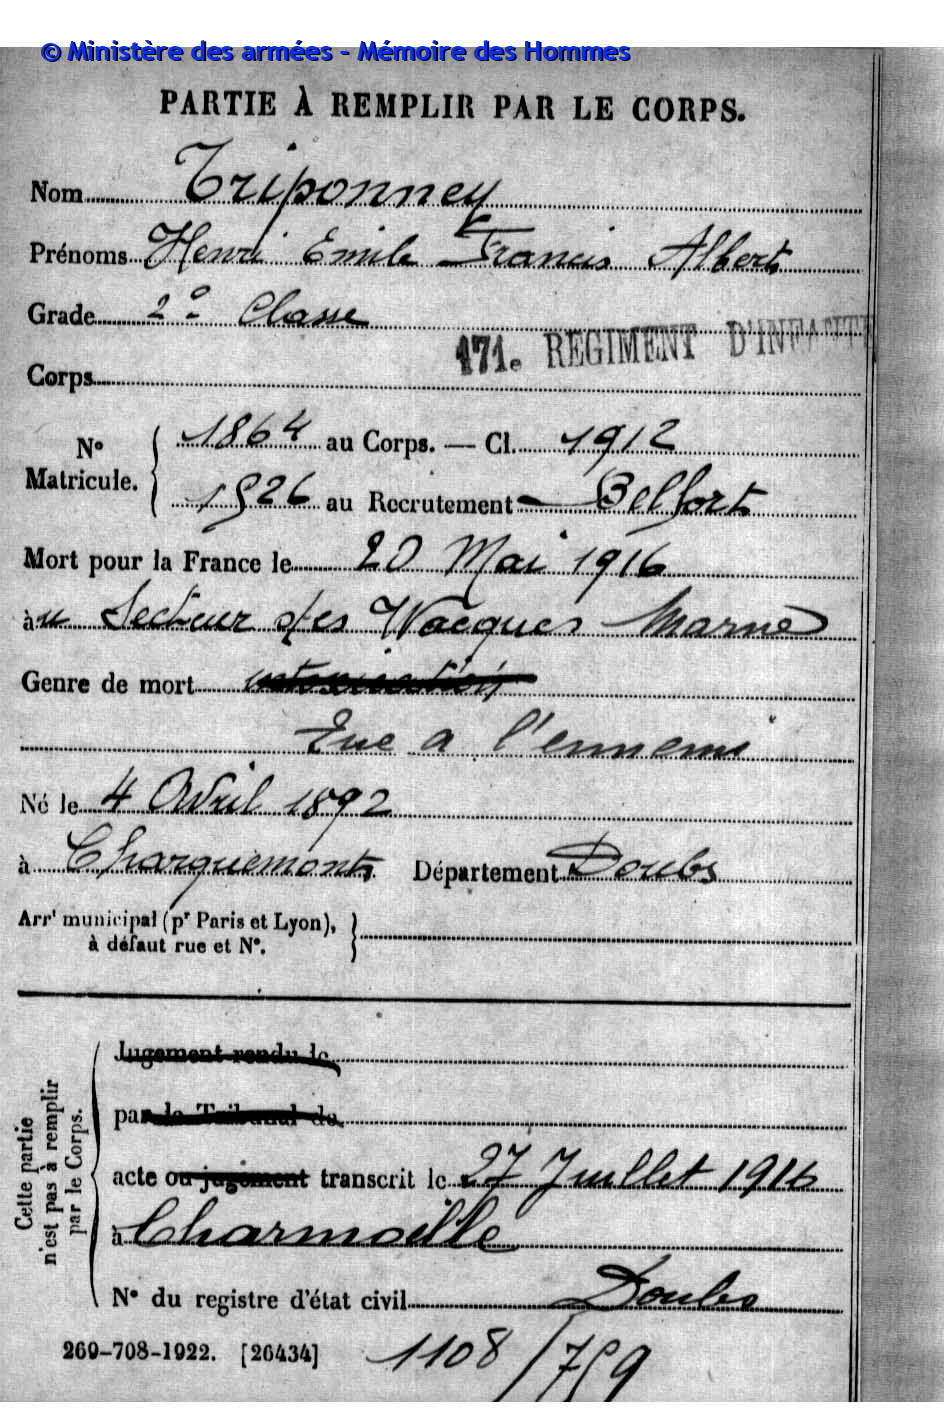 © Ministère des armées - Mémoire des Hommes
PARTIE À REMPLIR PAR LE CORPS.
Nom Triponney
Prénoms Henri Emile Francis Albert
Grade 2e Classe
171e REGIMENT D'INFANTE
Corps
No Matricule. { 1864 au Corps. — Cl. 1912
1526 au Recrutement Belfort
Mort pour la France le 20 Mai 1916
au Secteur des Wacques Marne
Genre de mort intoxication
Tué a l'ennemi
Né le 4 Avril 1892
à Charquemont Département Doubs
Arrt municipal (pr Paris et Lyon),
à défaut rue et No.
Cette partie
n'est pas à remplir
par le Corps.
Jugement rendu le
par le Tribunal de
acte ou jugement transcrit le 27 Juillet 1916
à Charmoille
No du registre d'état civil Doubs
269-708-1922. [26434] 1108/759